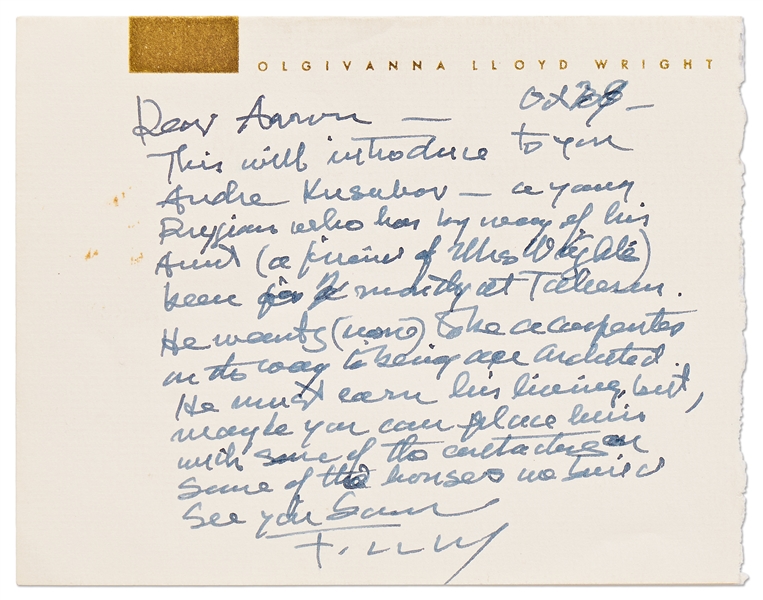 OLGIVANNA LLOYD WRIGHT
Dear Aaron —
Oct
This will introduce to you
Andre Kusubov — a young
Russian who has by way of his
Aunt (a friend of Mrs Wright's)
been for months at Taliesin.
He wants (now) to be a carpenter
on the way to being an architect.
He must earn his living, but,
maybe you can place him
with some of the contractors on
some of the houses we build
See you soon
F.LL.W